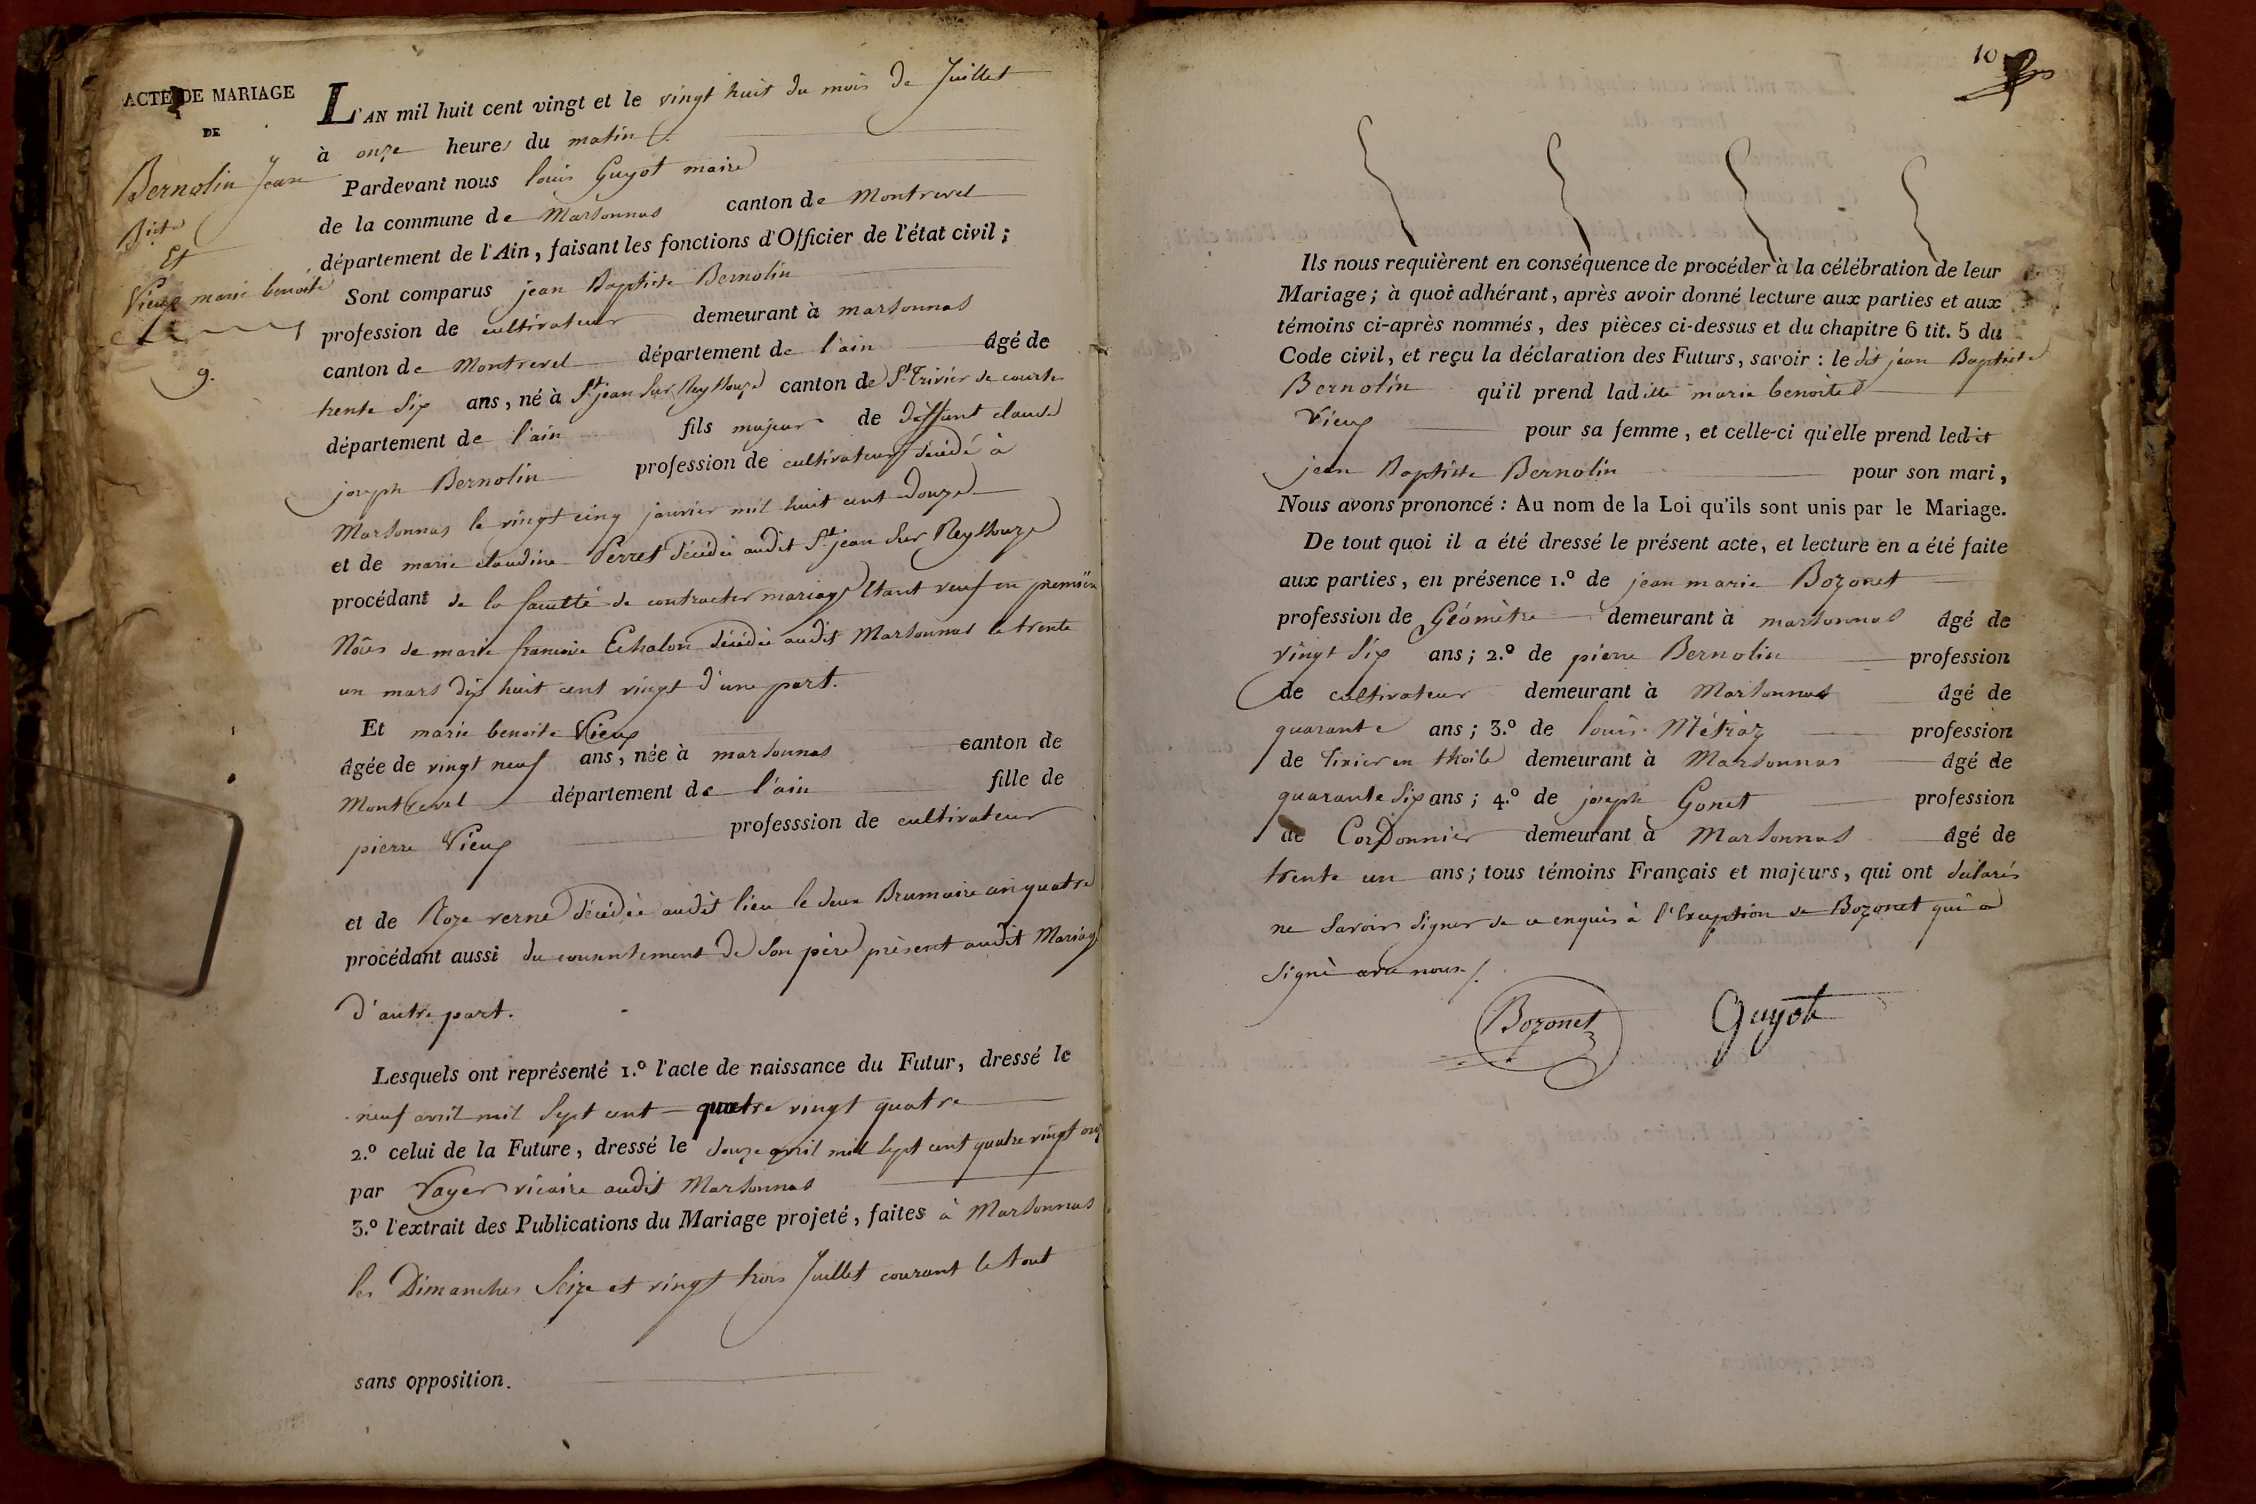 ACTE DE MARIAGE
DE
Bernolin Jean
Bte
Et
Vieux marie benoite
9.
L'AN mil huit cent vingt et le vingt huit du mois de Juillet
à onze heures du matin
Pardevant nous louis Guyot maire
de la commune de Marsonnas canton de Montrevel
département de l'Ain, faisant les fonctions d'Officier de l'état civil ;
Sont comparus jean Baptiste Bernolin
profession de cultivateur demeurant à marsonnas
canton de Montrevel département de l'ain âgé de
trente six ans, né à St jean sur Reyssouze canton de St Trivier de courtes
département de l'ain fils majeur de deffunt claude
joseph Bernolin profession de cultivateur décédé à
Marsonnas le vingt cinq janvier mil huit cent douze
et de marie claudine Perret décédée audit St jean sur Reyssouze
procédant de la faculté de contracter mariage Etant veuf en première
Nôces de marie francoise Echalon décédée audit Marsonnas le trente
un mars dix huit cent vingt d'une part.
Et marie benoite Vieux
âgée de vingt neuf ans, née à marsonnas canton de
Montrevel département de l'ain fille de
pierre Vieux professsion de cultivateur
et de Roze verne décédée audit lieu le deux Brumaire an quatre
procédant aussi du consentement de son père présent audit Mariage
d'autre part.
Lesquels ont représenté 1.º l'acte de naissance du Futur, dressé le
neuf avril mil sept cent quatre vingt quatre
2.º celui de la Future, dressé le douze avril mil sept cent quatre vingt onze
par Vayer vicaire audit Marsonnas
3.º l'extrait des Publications du Mariage projeté, faites à Marsonnas
les Dimanches Seize et vingt trois Juillet courant le tout
sans opposition.
10
Ils nous requièrent en conséquence de procéder à la célébration de leur
Mariage ; à quoi adhérant, après avoir donné lecture aux parties et aux
témoins ci-après nommés, des pièces ci-dessus et du chapitre 6 tit. 5 du
Code civil, et reçu la déclaration des Futurs, savoir : le dit jean Baptiste
Bernolin qu'il prend laditte marie benoite
Vieux pour sa femme, et celle-ci qu'elle prend ledit
jean Baptiste Bernolin pour son mari,
Nous avons prononcé : Au nom de la Loi qu'ils sont unis par le Mariage.
De tout quoi il a été dressé le présent acte, et lecture en a été faite
aux parties, en présence 1.º de jean marie Bozonet
profession de Géomètre demeurant à marsonnas âgé de
vingt six ans ; 2.º de pierre Bernolin profession
de cultivateur demeurant à Marsonnas âgé de
quarante ans ; 3.º de louis Métraz profession
de Tixier en thoile demeurant à Marsonnas âgé de
quarante six ans ; 4.º de joseph Gonet profession
de CorDonnier demeurant à Marsonnas âgé de
trente un ans ; tous témoins Français et majeurs, qui ont déclarés
ne savoir signer de ce enquis à l'Exception de Bozonet qui a
signé avec nous
Bozonet Guyot